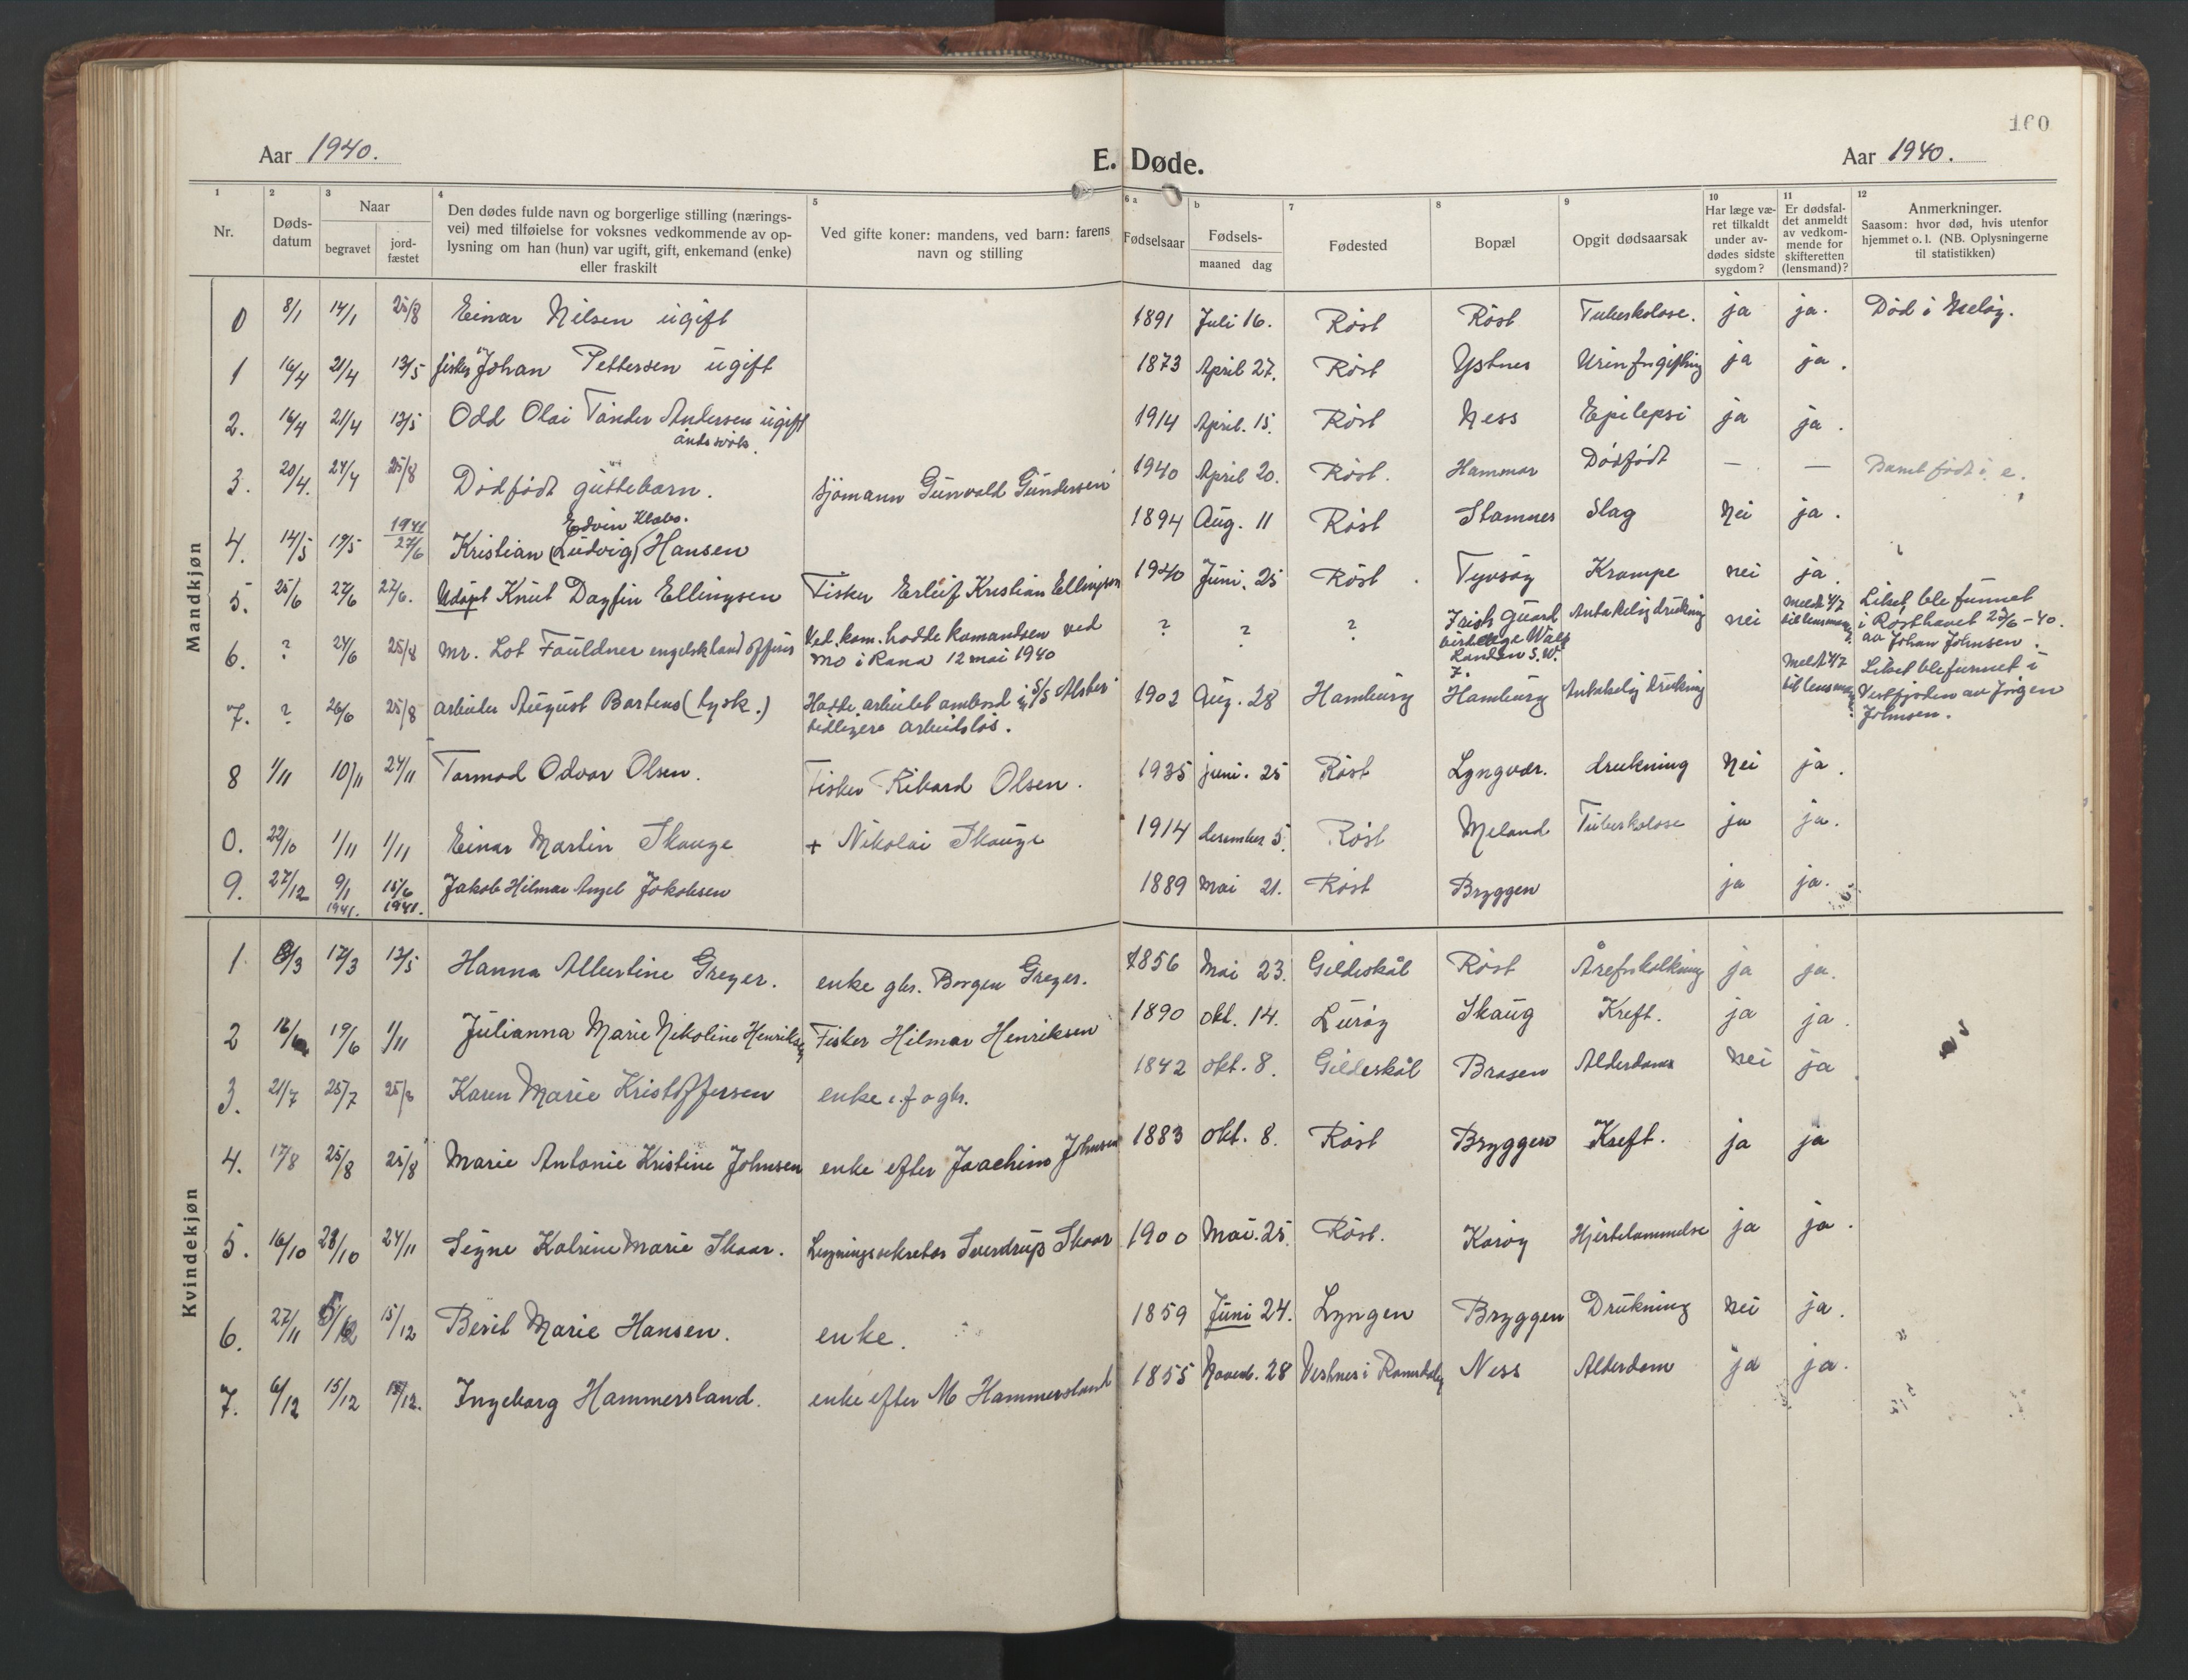 160
Aar 1940.
E. Døde.
Aar 1940.
1 2 3 4 5 6 a b 7 8 9 10 11 12
Nr.
Døds-
datum
Naar
begravet
jord-
fæstet
Den dødes fulde navn og borgerlige stilling (nærings-
vei) med tilføielse for voksnes vedkommende av op-
lysning om han (hun) var ugift, gift, enkemand (enke)
eller fraskilt
Ved gifte koner: mandens, ved barn: farens
navn og stilling
Fødselsaar
Fødsels-
maaned dag
Fødested
Bopæl
Opgit dødsaarsak
Har læge væ-
ret tilkaldt
under av-
dødes sidste
sygdom?
Er dødsfal-
det anmeldt
av vedkom-
mende for
skifteretten
(lensmand)?
Anmerkninger.
Saasom: hvor død, hvis utenfor
hjemmet o. l. (NB. Oplysningerne
til statistikken)
Mandkjøn
0 8/1 14/1 25/8 Einar Nilsen ugift 1891 Juli 16. Röst Röst Tuberkolose. ja ja. Död i Meløy.
1 16/4 21/4 13/5 fisker Johan Pettersen ugift 1873 April 27. Röst Ystnes Urinforgiftning ja ja.
2. 16/4 21/4 13/5 Odd Olai Tander Andersen ugift 1914 April. 15. Röst Ness Epilepsi ja ja.
åndssvak.
3. 20/4. 24/4 25/8 Dödfödt guttebarn. sjömann Gunvald Gundersen 1940 April 20. Röst. Hammar Dödfödt — —
Edvin Klabo.
4. 14/5 19/5 1941 27/6 Kristian (Ludvig) Hansen 1894 Aug. 11 Röst Stamnes Slag Nei ja.
5. 25/6 27/6 27/6. Udöpt Knut Dagfin Ellingsen Fisker Erleif Kristian Ellingsen 1940 Juni. 25 Röst. Tyvsöy Krampe nei ja.
6. ? 24/6 25/8 Mr. Lot Fauldner engelsk land offiser Vel. kom. hadde komandoen ved
Mo i Rana 12 mai 1940
? ? ? Irish Guard
London S.W.
Antakelig drukning nei Meldt 4/7
til lensmann
Liket ble funnet
i Rösthavet 23/6-40.
av Johan Johnsen.
7. ? 26/6 25/8 arbeider August Bartens (tysk.) Hadde arbeidet ombord i S/S Alster
tidligere arbeidslös.
1902 Aug. 28 Hamburg Hamburg Antakelig drukning Meldt 4/7
til lensmann
Liket ble funnet i
Vestfjorden av Jörgen
Johnsen.
8 1/11 10/11 24/11 Tormod Odvar Olsen. Fisker Rikard Olsen. 1935 juni. 25 Röst Lyngvær. drukning Nei ja.
0. 22/10 1/11 1/11 Einar Martin Skauge + Nikolai Skauge 1914 desember 5. Röst Meland Tuberkolose ja ja.
9. 27/12 9/1 1941. 15/6 1941. Jakob Hilmar Angel Jakobsen 1889 Mai 21. Röst Bryggen ja ja.
Kvindekjøn
1 8/3 17/3 13/5 Hanna Albertine Greger. enke gbr. Borgen Greger. 1856 Mai 23. Gildeskål Röst Åreforkalkning ja ja.
2 19/6 1/11 Julianna Marie Nikoline Henriksen Fisker Hilmar Henriksen 1890 okt. 14. Luröy Skaug Kreft. ja ja.
3. 21/7 25/7 25/8 Karen Marie Kristoffersen enke e. f o gbr. 1842 okt. 8. Gildeskål Brasen Alderdom Nei ja
4. 17/8 25/8 25/8 Marie Antonie Kristine Johnsen enke efter Joachim Johnsen 1883 okt. 8. Röst Bryggen Kreft. ja ja
5. 16/10 23/10 24/11 Signe Katrine Marie Skaar. Ligningssekretær Sverdrup Skaar 1900 Mai. 25. Röst. Karöy Hjertelammelse ja ja.
6. 27/11 15/12 Berit Marie Hansen. enke. 1859 Juni 24. Lyngen Bryggen Drukning Nei ja.
7. 6/12 15/12 15/12. Ingeborg Hammersland. enke efter M Hammersland 1855 Novemb. 28 Vestnes i Romsdalen Ness Alderdom ja ja.